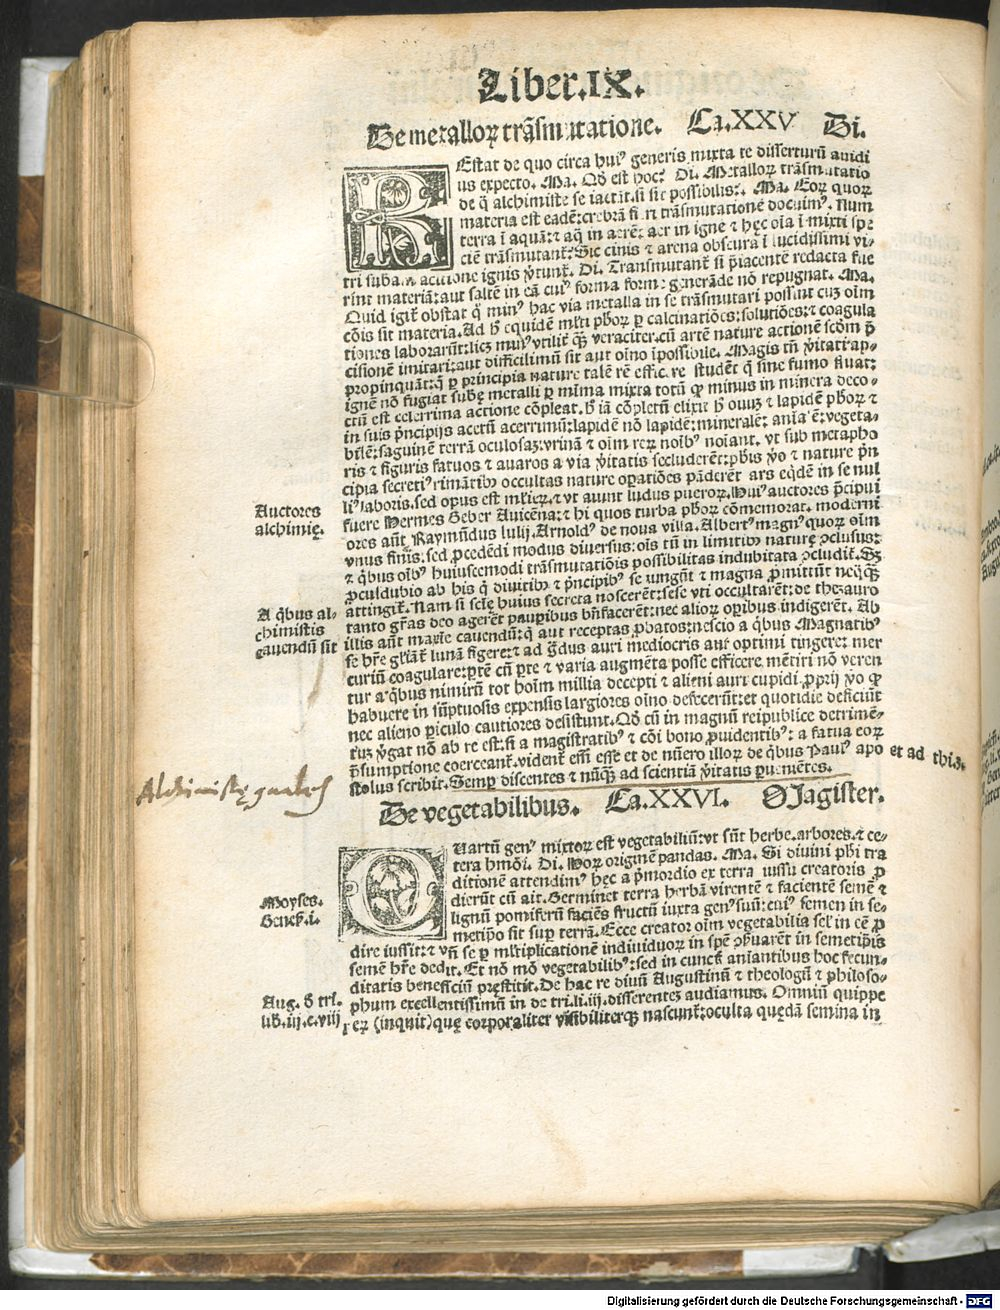 Liber.IX.
De metalloꝝ trãsmutatione. Ca.XXV Di.
REstat de quo circa huiꝰ generis mixta te disserturũ auidi
us expecto. Ma. Qđ est hoc? Di. Metalloꝝ trãsmutatio
de q̃ alchimiste se iactãt. si sit possibilis. Ma. Eoꝝ quoꝝ
materia est eadẽ: crebrã fieri trãsmutationẽ docuimꝰ. Num
terra ĩ aquã: ⁊ aq̃ in aerẽ: aer in igne ⁊ hęc oĩa ĩ mixti spe
ciẽ trãsmutant̃. Sic cinis ⁊ arena obscura ĩ lucidissimi vi-
tri substantiã actione ignis v̓tunt̃. Di. Transmutant̃ si p̃iacentẽ redacta fue
rint materiã: aut saltẽ in eã cuiꝰ forma formę generãde nõ repugnat. Ma.
Quid igit̃ obstat q̃ minꝰ hac via metalla in se trãsmutari possint cuʒ oĩm
cõis sit materia. Ad h̓ equidẽ ml̓ti ph̓oꝝ ꝑ calcinatiões: solutiões: ⁊ coagula
tiones laborarũt: licʒ minꝰ vtilit̃ q̃ꝫ veraciter. cũ artẽ nature actionẽ scđm p̃
cisionẽ imitari: aut difficilimũ sit aut oĩno ĩpossibile. Magis tñ v̓itati ap-
propinquãt: q̃ ꝑ principia nature talẽ rẽ efficere studẽt q̃ sine fumo fluat:
ignẽ nõ fugiat subę metalli ꝑ mĩma mixta totũ ꝙ minus in minera deco-
ctũ est celerrima actione cõpleat. h̓ iã cõpletũ elixir h̓ ouuʒ ⁊ lapidẽ ph̓oꝝ ⁊
in suis p̃ncipijs acetũ acerrimũ: lapidẽ nõ lapidẽ: mineralẽ: aĩalẽ: vegeta-
bilẽ: saguinẽ terrã oculosaʒ: vrinã ⁊ oĩm reꝝ noĩbꝰ noĩant. vt sub metapho
ris ⁊ figuris fatuos ⁊ auaros a via v̓itatis secluderẽt: ph̓is v̓o ⁊ nature p̃n
cipia secretiꝰ rimãtibꝰ occultas nature oꝑatiões pãderẽt ars eqdẽ in se nul
liꝰ laboris. sed opus est ml̓ieꝝ. ⁊ vt aiunt ludus pueroꝝ. Huiꝰ auctores p̃cipui
fuere Hermes Geber Auicẽna: ⁊ hi quos turba ph̓oꝝ cõmemorat. moderni
ores aũt Raymũdus lulij. Arnoldꝰ de noua villa. Albertꝰ magnꝰ quoꝝ oĩm
vnus finis: sed ꝓcedẽdi modus diuersus: oĩs tñ in limitibꝰ naturę ꝯclusus:
⁊ q̃bus oĩbꝰ huiuscemodi trãsmutatiõis possibilitas indubitata ꝯcludit̃. Sʒ
ꝓculdubio ab his q̃ diuitibꝰ ⁊ p̃ncipibꝰ se iungũt ⁊ magna ꝓmittũt neq̃q̃ꝫ
attingit̃. Nam si sciẽtię huius secreta noscerẽt: sese vti occultarẽt: de thezauro
tanto gr̃as deo agerẽt pauꝑibus bñfacerẽt: nec alioꝝ oꝑibus indigerẽt. Ab
illis aũt maxie cauendũ: q̃ aut receptas ꝓbatos: nescio a q̃bus Magnatibꝰ
se hr̃e gl̓iãt̃ lunã figere: ⁊ ad g̃dus auri mediocris aut optimi tingere: mer
curiũ coagulare: ꝑtẽ cũ ꝑte ⁊ varia augmẽta posse efficere. mẽtiri nõ veren
tur a q̃bus nimirũ tot hoĩm millia decepti ⁊ alieni auri cupidi. ꝓprij v̓o ꝙ
habuere in sũptuosis expensis largiores oĩno defecerũt: et quotidie deficiũt
nec alieno ꝑiculo cautiores desistunt. Qđ cũ in magnũ reipublice detrimẽ-
tuʒ v̓gat nõ ab re est. si a magistratibꝰ ⁊ cõi bono ꝓuidentibꝰ: a fatua eoꝝ
p̃sumptione coerceant̃. vident̃ em̃ esse et de nũero illoꝝ de q̃bus Paulꝰ apo et ad thi.3.
stolus scribit. Semꝑ discentes ⁊ nũq̃ꝫ ad scientiã v̓itatis ꝑueniẽtes.
De vegetabilibus. Ca.XXVI. Magister.
QUartũ genꝰ mixtoꝝ est vegetabiliũ: vt sũt herbe. arbores. ⁊ ce-
tera hmõi. Di. Hoꝝ originẽ pandas. Ma. Si diuini ph̓i tra
ditionẽ attendimꝰ hęc a p̃mordio ex terra iussu creatoris ꝓ
dierũt cũ ait. Germinet terra herbã virentẽ ⁊ facientẽ semẽ ⁊
lignũ pomiferũ faciẽs fructũ iuxta genꝰ suũ: cuiꝰ semen in se-
metip̃o sit suꝑ terrã. Ecce creator oĩm vegetabilia sel̓ in eẽ ꝓ
dire iussit: ⁊ vñ se ꝑ ml̓tiplicationẽ indiuiduoꝝ in spẽ ꝯseruarẽt in semetip̃is
semẽ hr̃e dedit. Et nõ mõ vegetabilibꝰ: sed in cunctꝭ aniantibus hoc fecun-
ditatis beneficiũ pręstitit. De hac re diuũ Augustinũ ⁊ theologũ ⁊ philoso-
phum excellentissimũ in de tri. li. iij. disserentẽ audiamus. Omniũ quippe
reꝝ (inquit) quę corporaliter visibiliterqꝫ nascunt̃: occulta quędã semina in
Auctores
alchimię.
A q̃bus al-
chimistis
cauendũ sit
Alchimistę
Moyses.
Geneś. i.
Aug. d̓ tri.
lib. iij. c. viij
Digitalisierung gefördert durch die Deutsche Forschungsgemeinschaft - DFG